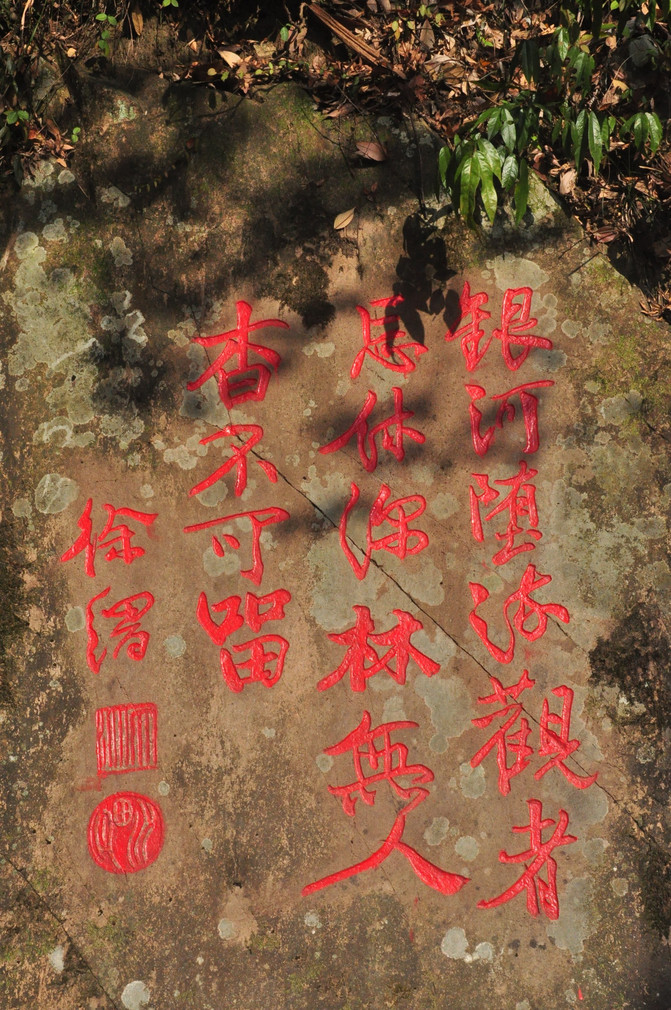 銀河堕觀者
思休深林無人
杳不可留
徐渭